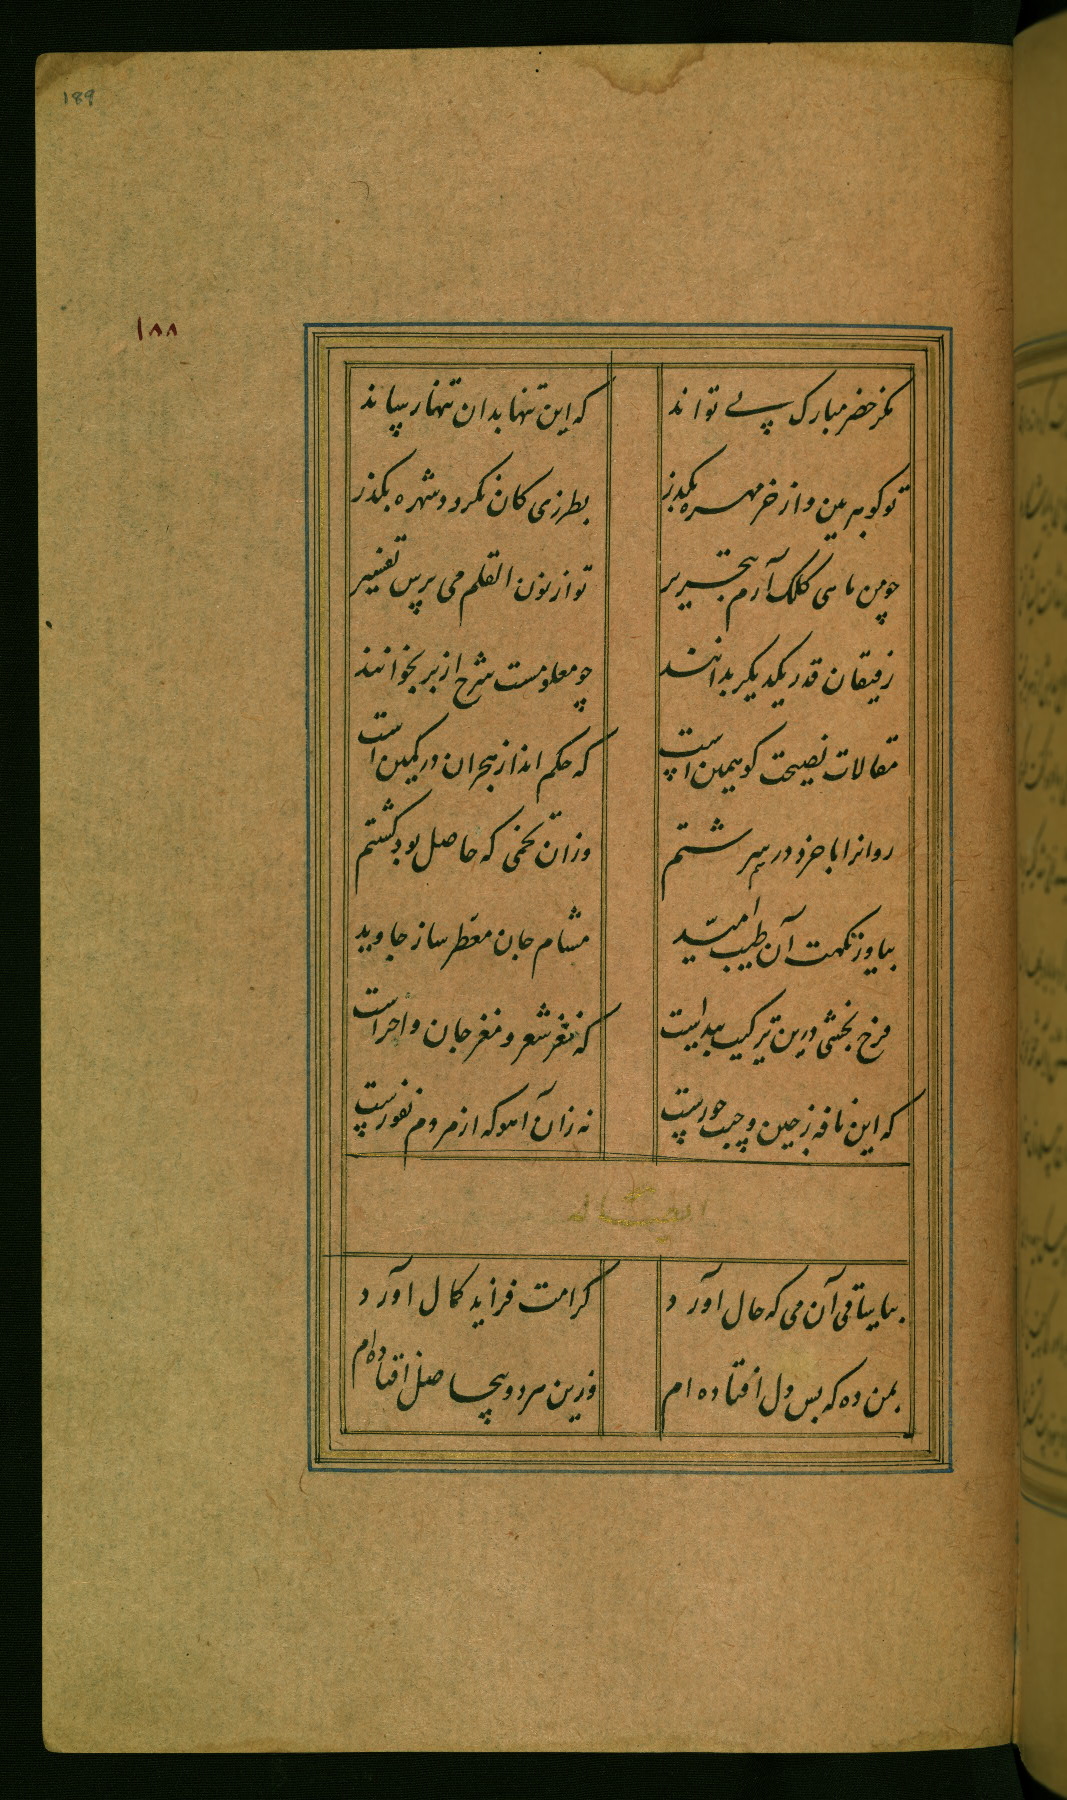 189
١٨٨
مکر خضر مبارک پے تواند که این تنها بدان تنها رساند
تو کوهر بین و از خر مهره بکذر بطرزی کان نکردد شهره بکذر
چو من ماهی کلک آرم بتحریر تو از نون القلم می پرس تفسیر
رفیقان قدر یکدیکر بدانند چو معلومست شرح از بر بخوانند
مقالات نصیحت کو همین است که حکم انداز هجران در کمین است
روانرا با خرد در هم سرشتم وزان تخمی که حاصل بود کشتم
بیا وز نکهت آن طیب امید مشام جان معطر ساز جاوید
فرح بخشی درین ترکیب پیداست که نغز شعر و مغز جان و اجزاست
که این نافه ز چین و جیب حورست نه زان آهو که از مردم نفورست
بیا ساقی آن می که حال آورد کرامت فزاید کمال آورد
بمن ده که بس دل افتاده ام وزین هر دو بیحاصل افتاده ام